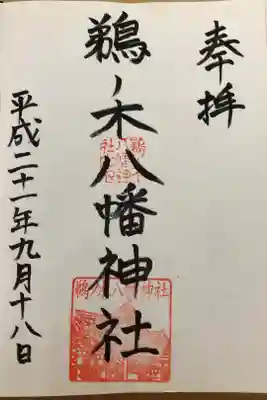 奉拝
鵜ノ木八幡神社
平成二十一年九月十八日